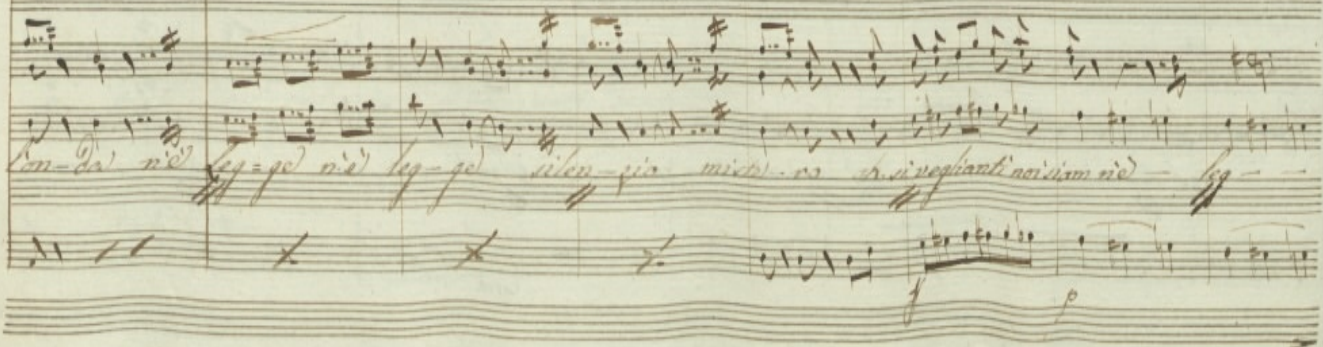 l'on-da n'è leg=ge n'è leg-ge silen-zio miste-ro si veglianti noi siam n'è - leg - -
f p